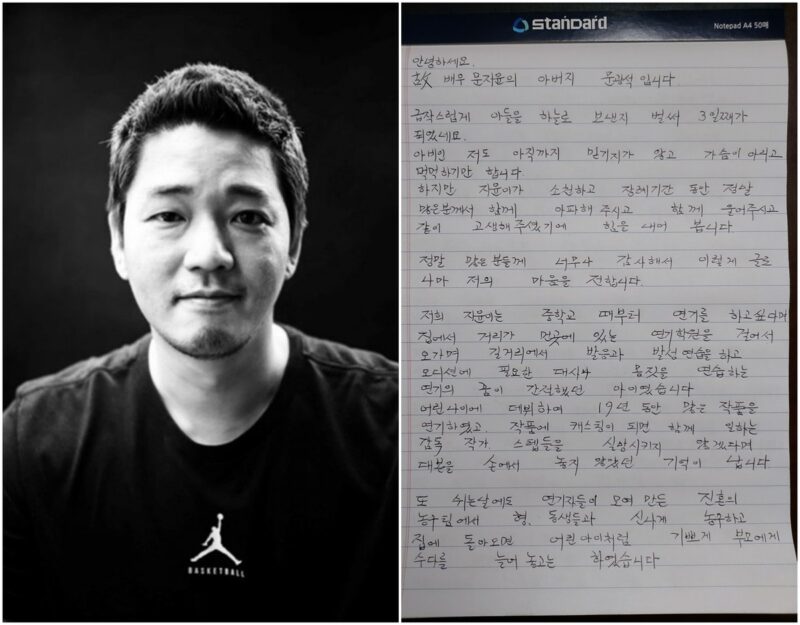 BASKETBALL
standard
Notepad A4 50매
안녕하세요.
故 배우 문지윤의 아버지 문광석 입니다
급작스럽게 아들을 하늘로 보낸지 벌써 3일째가
되었네요.
아비인 저도 아직까지 믿기지가 않고 가슴이 아시고
먹먹하기만 합니다
하지만 지윤이가 소천하고 장례기간 동안 정말
많은분께서 함께 아파해 주시고 함께 울어주시고
같이 고생해주셨기에 힘을 내어 봅니다
정말 많은 분들께 너무나 감사해서 이렇게 글로
나마 저의 마음을 전합니다.
저희 지윤이는 중학교 때부터 연기를 하고싶다며
집에서 거리가 먼곳에 있는 연기학원을 걸어서
오가며 길거리에서 발음과 발성 연습을 하고
오디션에 필요한 대사나 몸짓을 연습하는
연기의 꿈이 간절했던 아이였습니다
어린나이에 데뷔하여 19년 동안 많은 작품을
연기하였고, 작품에 캐스팅이 되면 함께 일하는
감독 작가 스텝들을 실망시키지 않겠다며
대본을 손에서 놓지 않았던 기억이 납니다
또 쉬는날에도 연기자들이 모여 만든 진혼의
농구팀에서 형, 동생들과 신나게 농구하고
집에 돌아오면 어린아이처럼 기쁘게 부모에게
수다를 늘어 놓고는 하였습니다